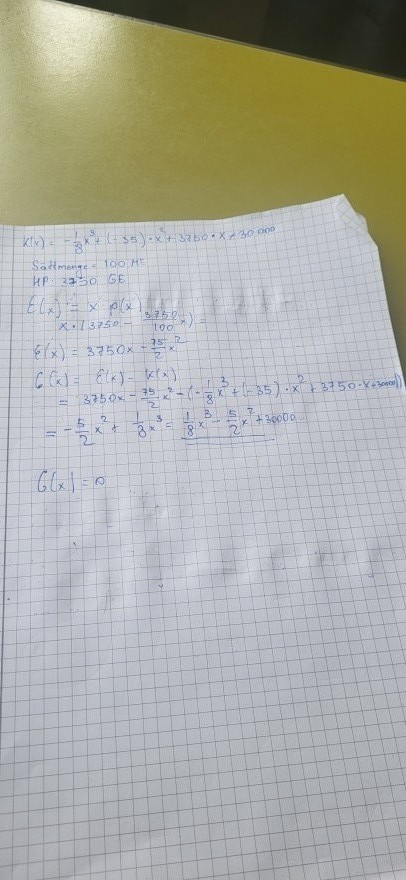 K(x) = -1/8x³ + (-35)·x² + 3750·x + 30000
Sättmenge = 100 ME
HP: 3750 GE
E(x) = x · p(x)
x · (3750 - 3750/100 x) =
E(x) = 3750x - 75/2 x²
G(x) = E(x) - K(x)
= 3750x - 75/2 x² - (-1/8x³ + (-35)·x² + 3750·x + 30000))
= -5/2 x² + 1/8 x³ = 1/8 x³ - 5/2 x² + 30000
G(x) = 0